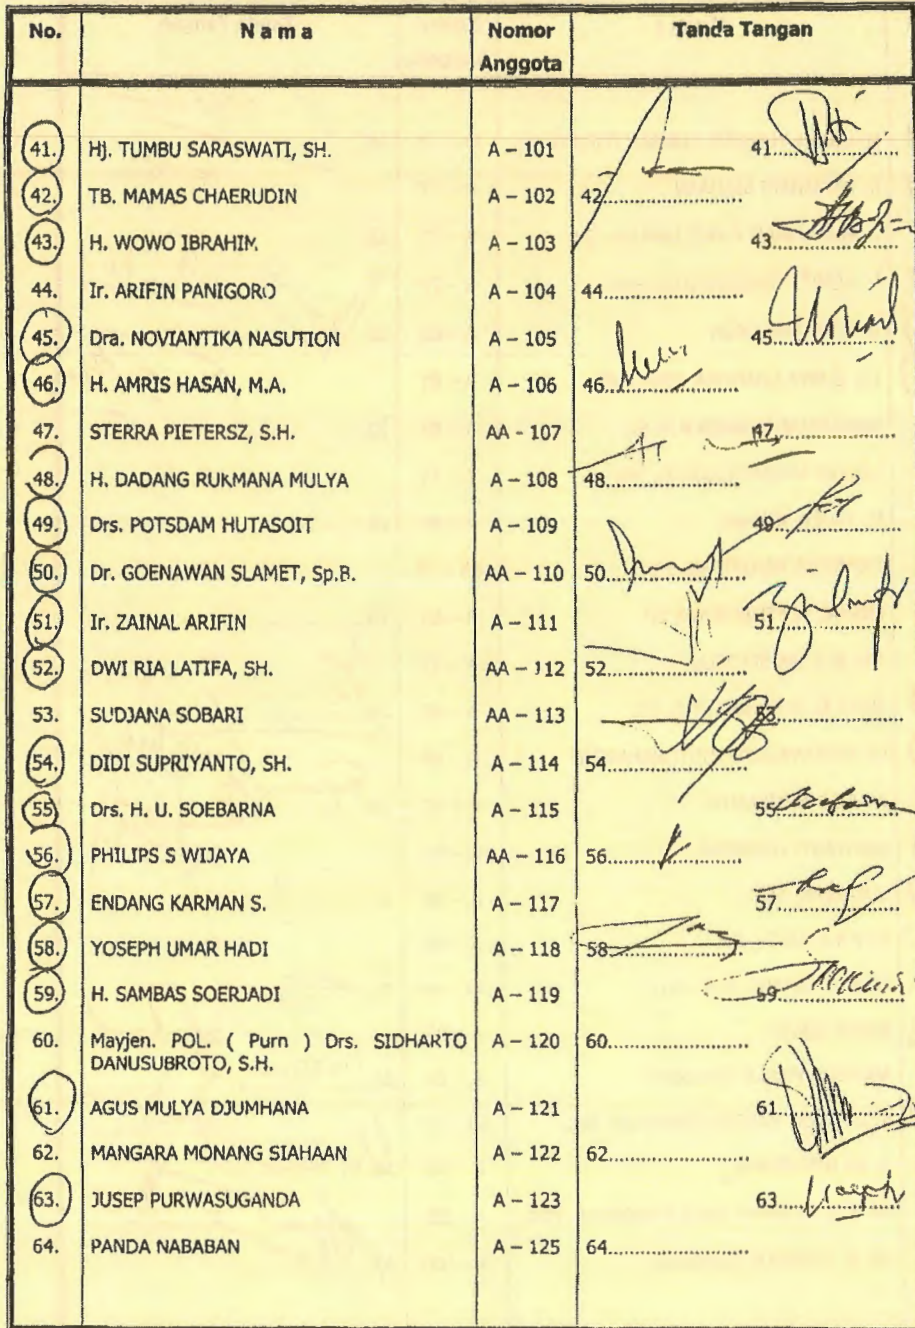 No. N a m a Nomor Anggota Tanda Tangan
41. Hj. TUMBU SARASWATI, SH. A – 101 41....................
42. TB. MAMAS CHAERUDIN A – 102 42.......................
43. H. WOWO IBRAHIM. A – 103 43.....................
44. Ir. ARIFIN PANIGORO A – 104 44.......................
45. Dra. NOVIANTIKA NASUTION A – 105 45.....................
46. H. AMRIS HASAN, M.A. A – 106 46.......................
47. STERRA PIETERSZ, S.H. AA - 107 47.....................
48. H. DADANG RUKMANA MULYA A – 108 48.......................
49. Drs. POTSDAM HUTASOIT A – 109 49.....................
50. Dr. GOENAWAN SLAMET, Sp.B. AA – 110 50.......................
51. Ir. ZAINAL ARIFIN A – 111 51.....................
52. DWI RIA LATIFA, SH. AA – 112 52.......................
53. SUDJANA SOBARI AA – 113 53.....................
54. DIDI SUPRIYANTO, SH. A – 114 54.......................
55. Drs. H. U. SOEBARNA A – 115 55.....................
56. PHILIPS S WIJAYA AA – 116 56.......................
57. ENDANG KARMAN S. A – 117 57.....................
58. YOSEPH UMAR HADI A – 118 58.......................
59. H. SAMBAS SOERJADI A – 119 59.....................
60. Mayjen. POL. ( Purn ) Drs. SIDHARTO A – 120 60.......................
DANUSUBROTO, S.H.
61. AGUS MULYA DJUMHANA A – 121 61.....................
62. MANGARA MONANG SIAHAAN A – 122 62.......................
63. JUSEP PURWASUGANDA A – 123 63.....................
64. PANDA NABABAN A – 125 64.......................